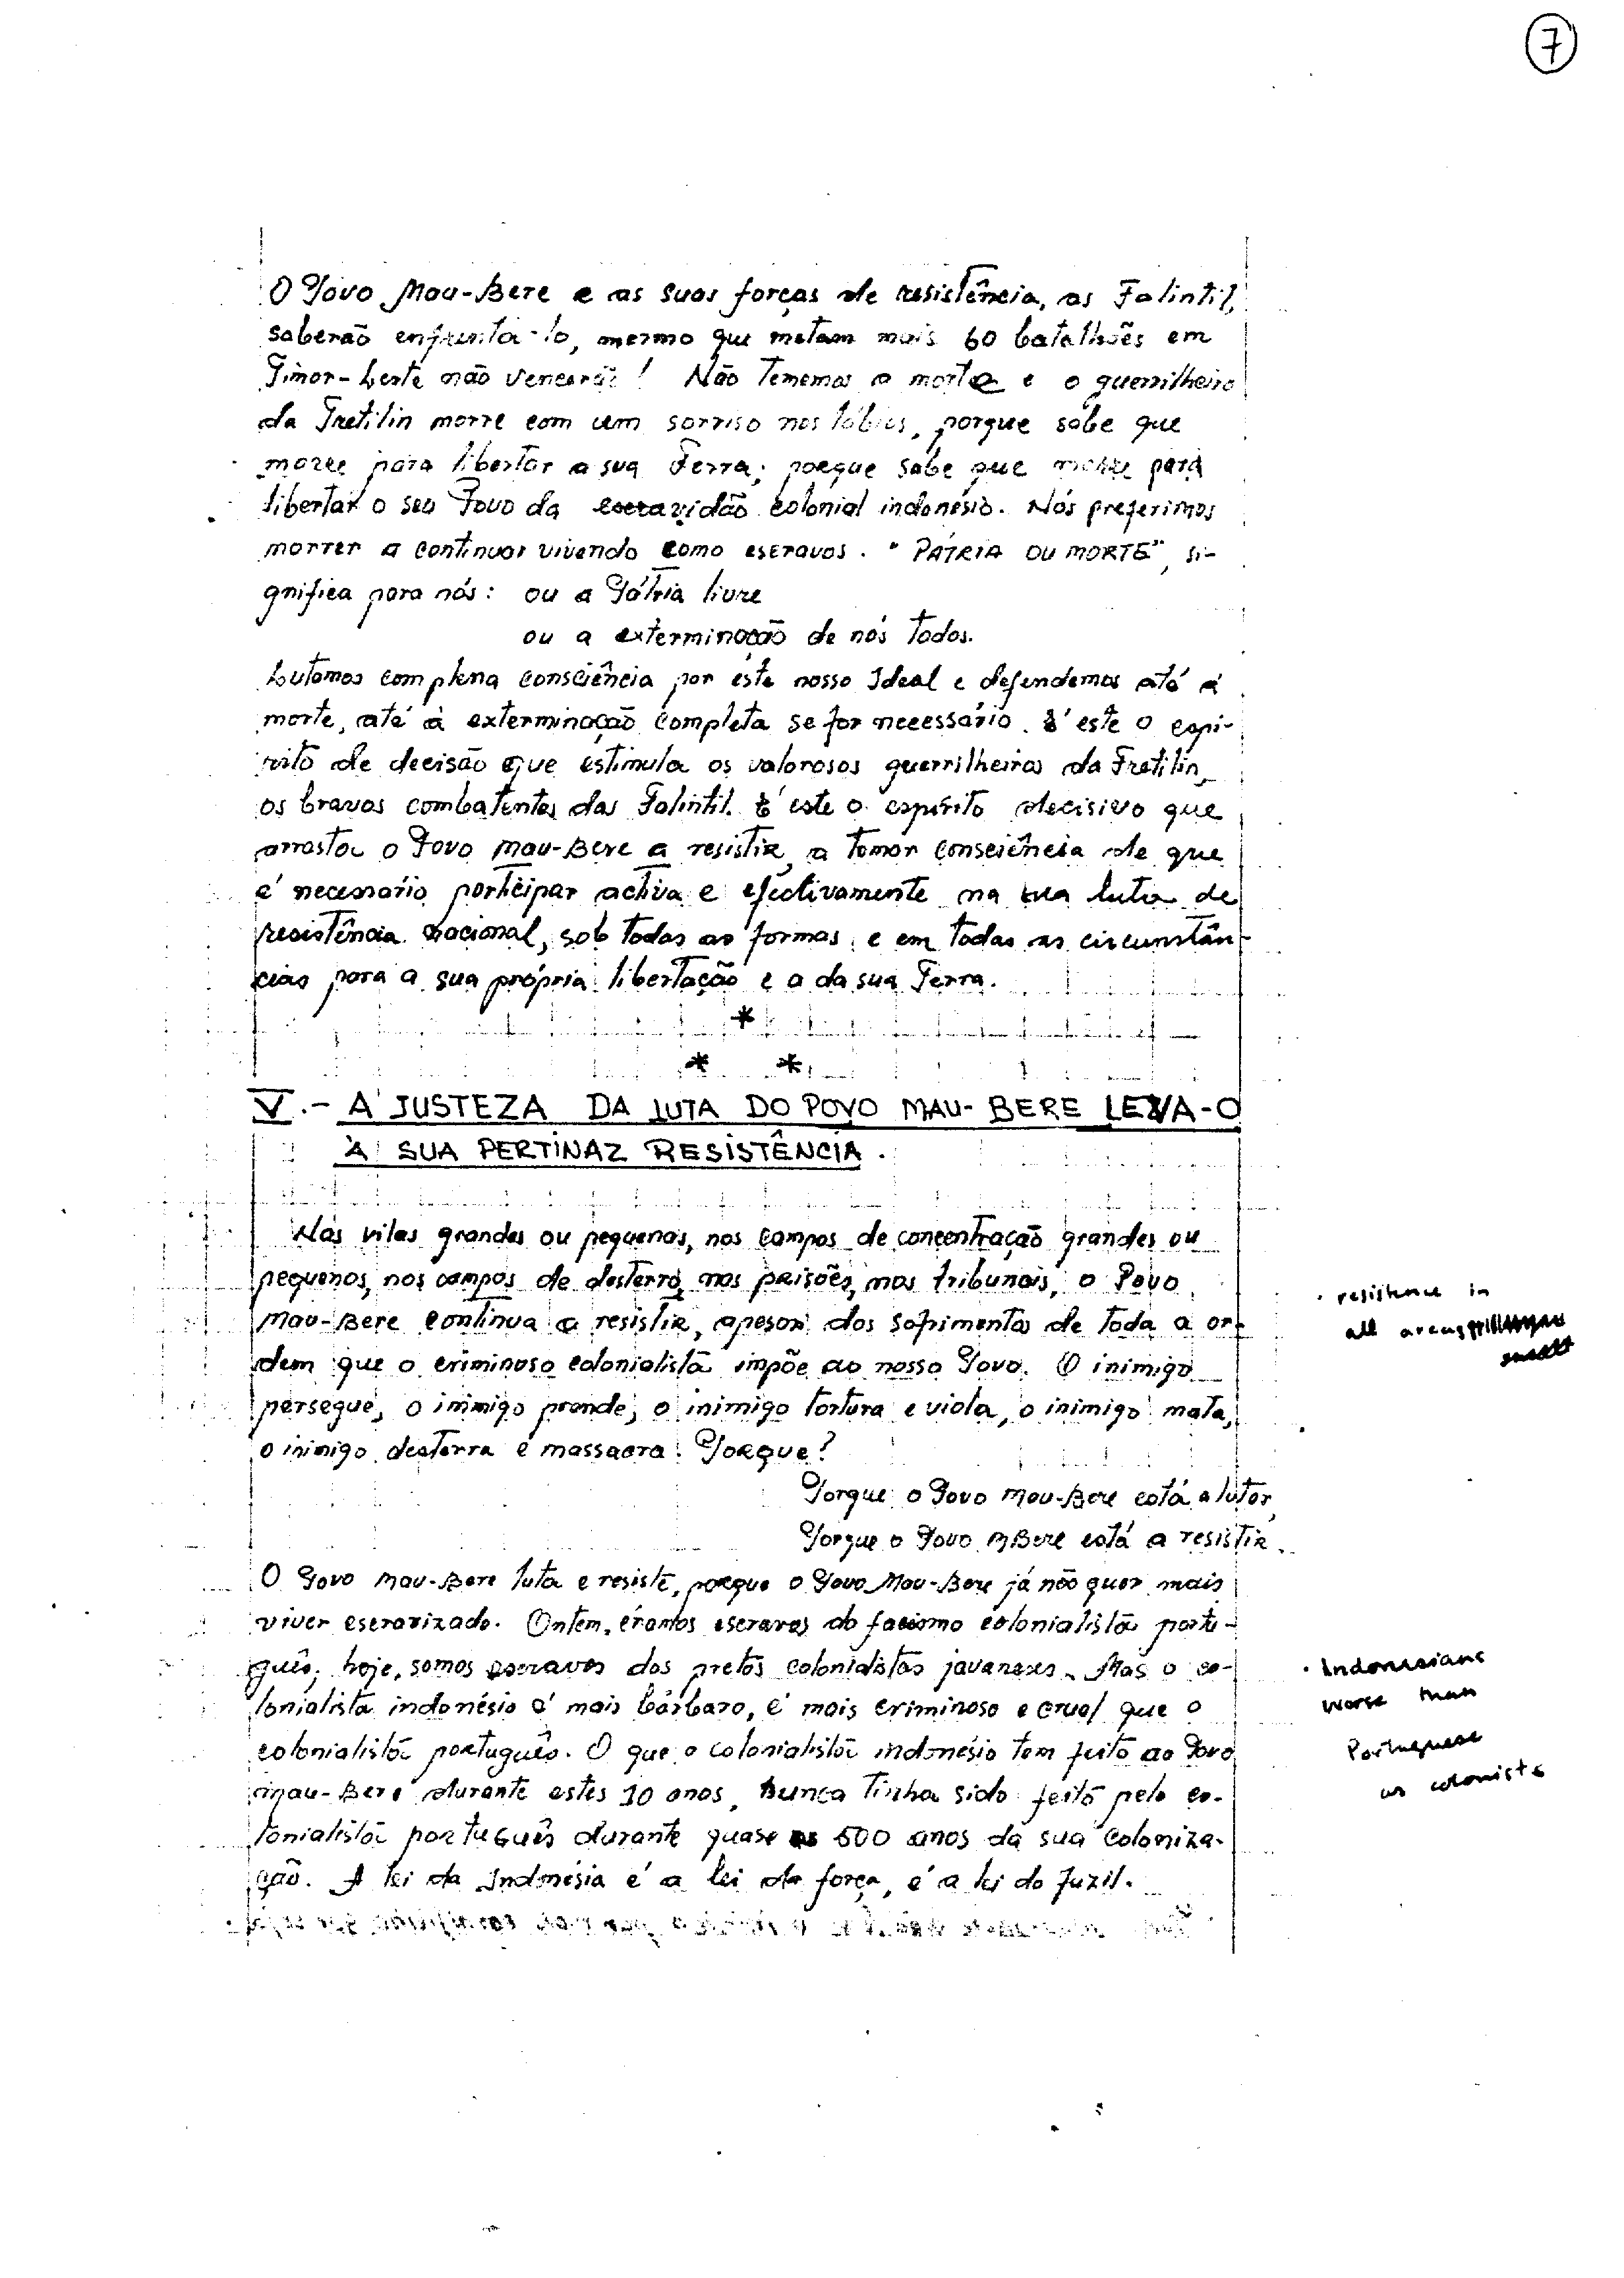 7
O Povo Mau-Bere e as suas forças de resistência, as Falintil,
saberão enfrenta-lo, mesmo que metam mais 60 batalhões em
Timor-Leste não vencerão! Não Tememos a morte e o guerrilheiro
da Fretilin morre com um sorriso nos lábios, porque sabe que
morre para libertar a sua Terra; porque sabe que morre para
libertar o seu Povo da escravidão colonial indonésio. Nós preferimos
morrer a continuar vivendo como escravos. "PÁTRIA OU MORTE", si-
gnifica para nós: ou a Pátria livre
ou a exterminação de nós Todos.
Lutamos com plena consciência por este nosso Ideal e defendemos até à
morte, até à exterminação completa se for necessário. É este o espí-
rito de decisão que estimula os valorosos guerrilheiros da Fretilin,
os bravos combatentes das Falintil. É este o espírito decisivo que
arrasta o Povo Mau-Bere a resistir, a Tomar consciência de que
é necessário participar activa e efectivamente na sua luta de
resistência nacional, sob todas as formas e em todas as circunstân-
cias para a sua própria libertação e a da sua Terra.
*
* *
V.- A JUSTEZA DA LUTA DO POVO MAU-BERE LEVA-O
À SUA PERTINAZ RESISTÊNCIA.
Nas vilas grandes ou pequenas, nos campos de concentração grandes ou
pequenos, nos campos de desterro, nas prisões, nos tribunais, o Povo
Mau-Bere continua a resistir, apesar dos sofrimentos de toda a or-
dem que o criminoso colonialista impõe ao nosso Povo. O inimigo
persegue, o inimigo prende, o inimigo tortura e viola, o inimigo mata,
o inimigo desterra e massacra. Porque?
Porque o Povo Mau-Bere está a lutar,
Porque o Povo MBere está a resistir.
O Povo Mau-Bere luta e resiste, porque o Povo Mau-Bere já não quer mais
viver escravizado. Ontem, éramos escravos do fascismo colonialista portu-
guês; hoje, somos escravos dos pretos colonialistas javaneses. Mas o co-
lonialista indonésio é mais bárbaro, é mais criminoso e cruel que o
colonialista português. O que o colonialista indonésio tem feito ao Povo
Mau-Bere durante estes 10 anos, nunca Tinha sido feito pelo co-
lonialista português durante quase 500 anos da sua coloniza-
ção. A lei da Indonésia é a lei da força, é a lei do fuzil.
· resistence in
all areas
· Indonesians
worse than
Portuguese
as colonists